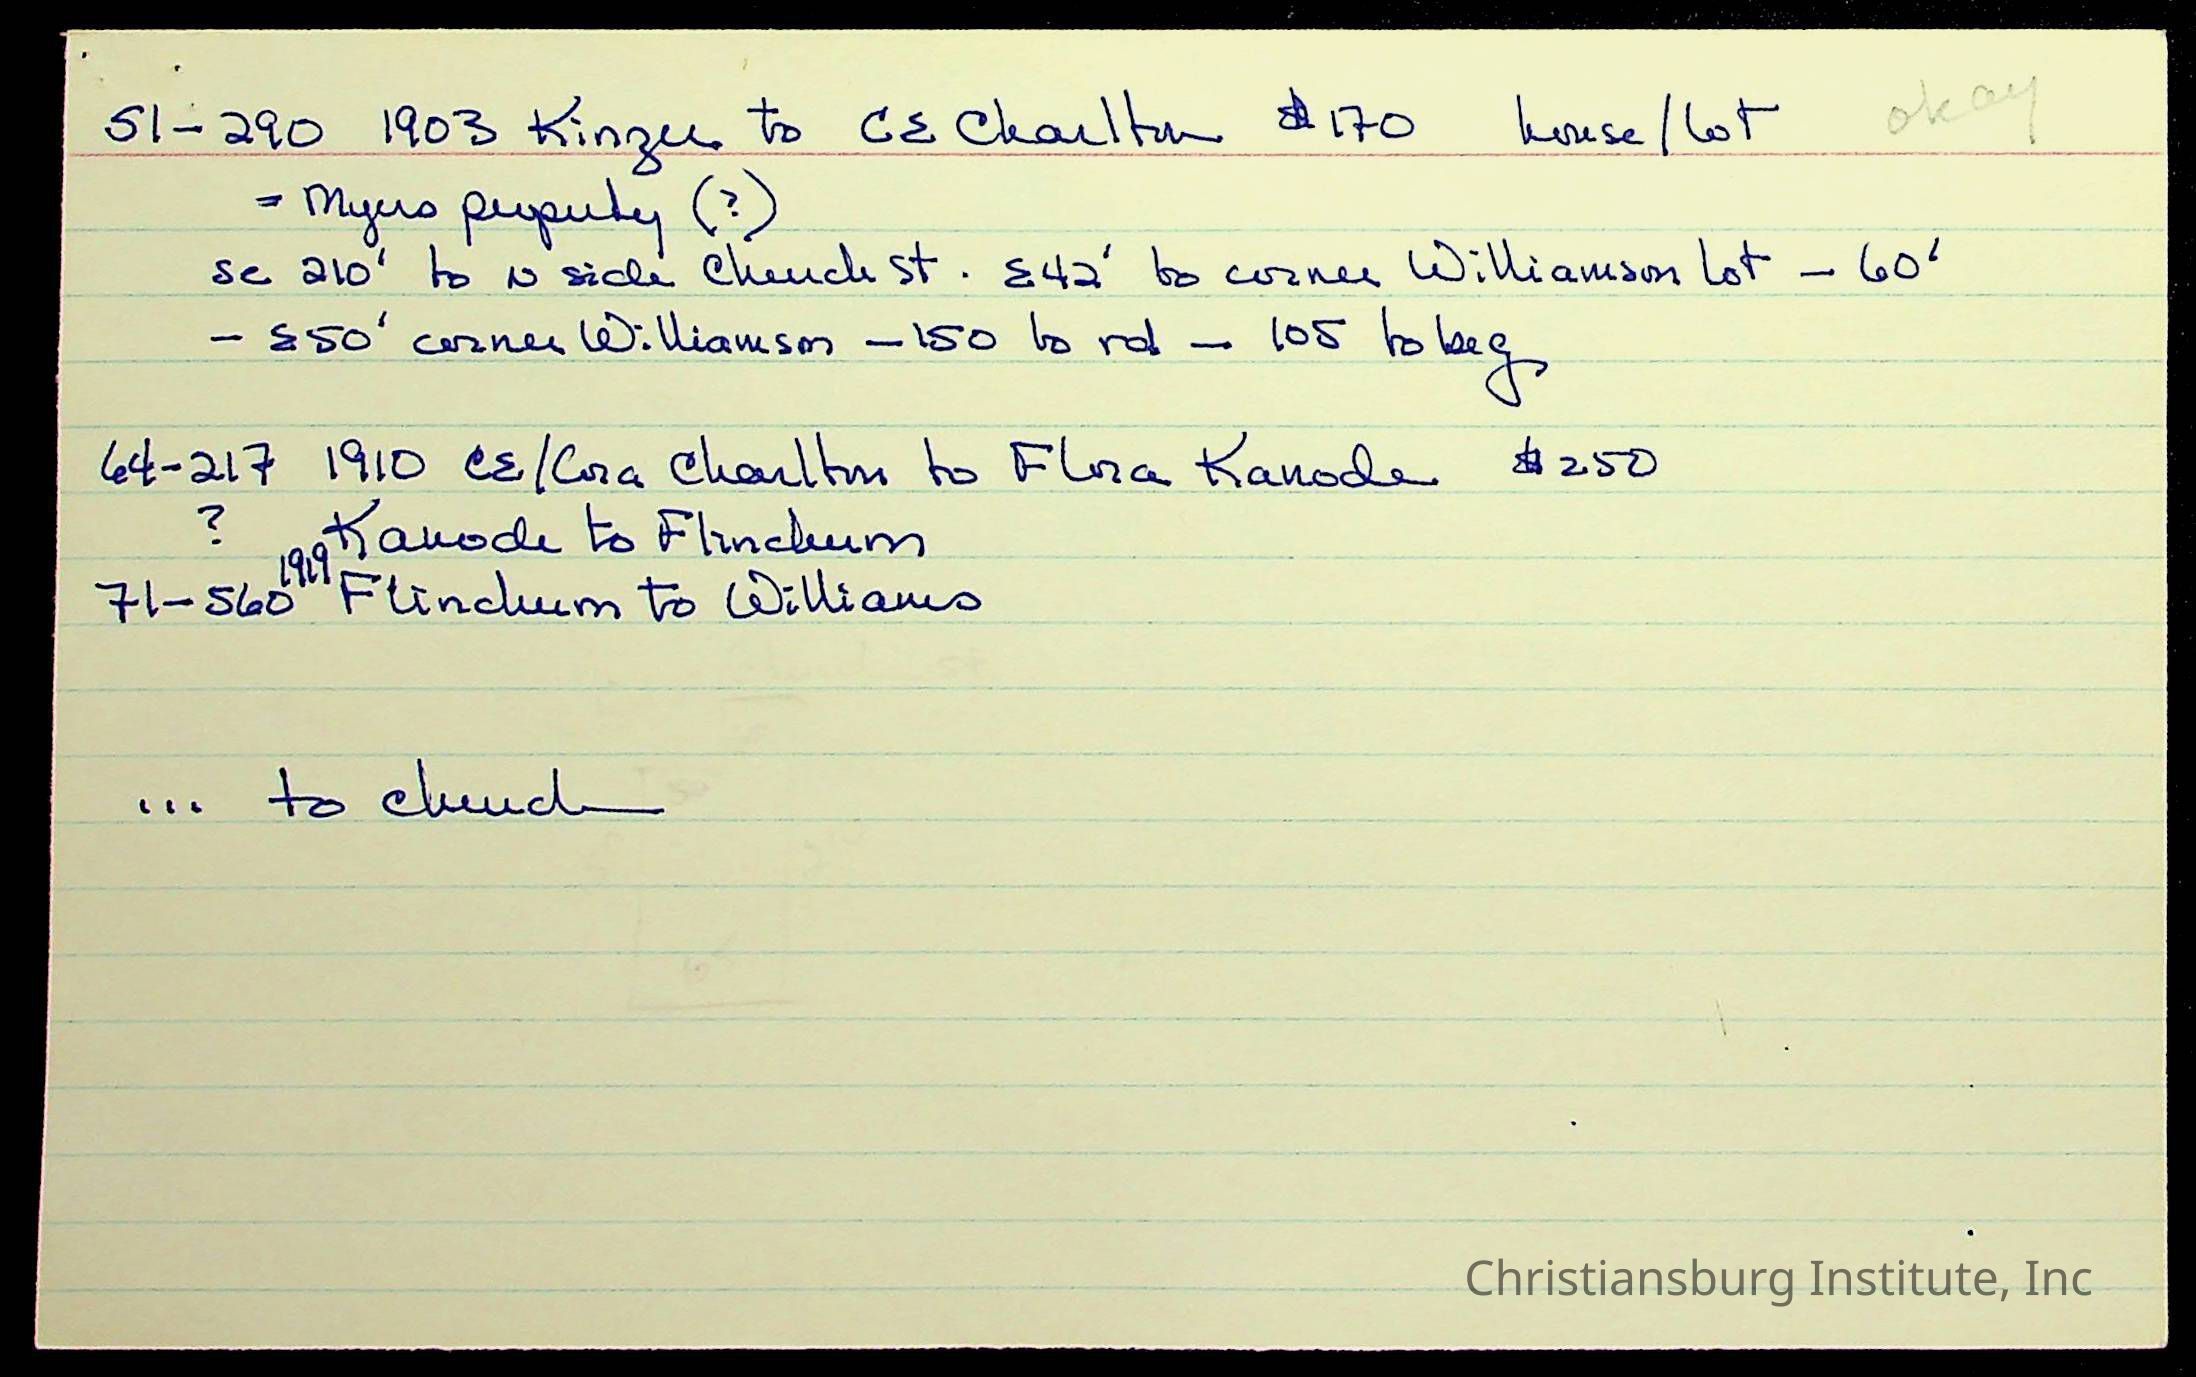 51-290 1903 Kinzer to CE Charlton $170 house/lot okay
= Myers property (?)
se 210' to N side Church St. E42' to corner Williamson lot - 60'
- E50' corner Williamson - 150 to rd - 105 to beg
64-217 1910 CE/Cora Charlton to Flora Kanode $250
? Kanode to Flinchum
71-560 1919 Flinchum to Williams
... to church
Christiansburg Institute, Inc